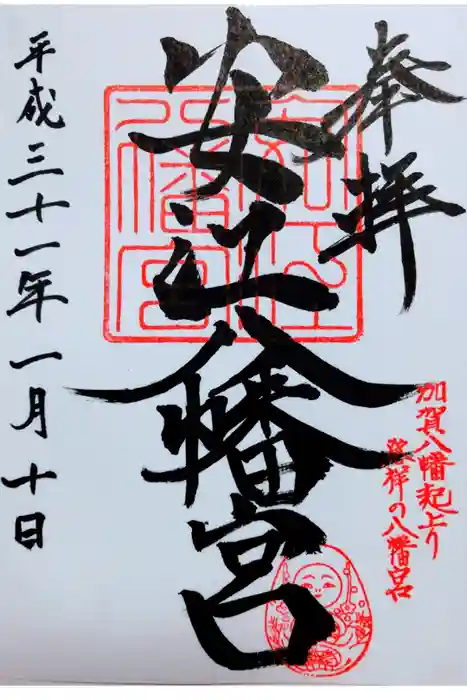 奉拝
加賀八幡起上り
発祥の八幡宮
安江八幡宮
平成三十一年一月十日